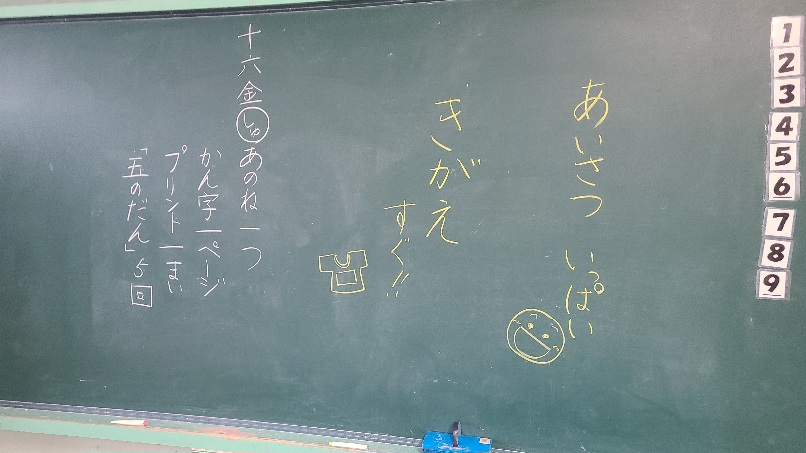 あいさつ いっぱい
きがえ
すぐ!!
十六金 しゅ あのね一つ
かん字一ページ
プリント一まい
「五のだん」5回
1
2
3
4
5
6
7
8
9